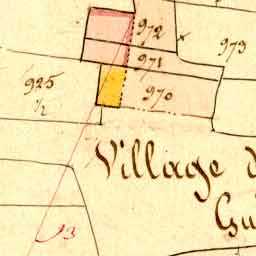 972
973
971
925
1/2
970
Village d
Gu
93